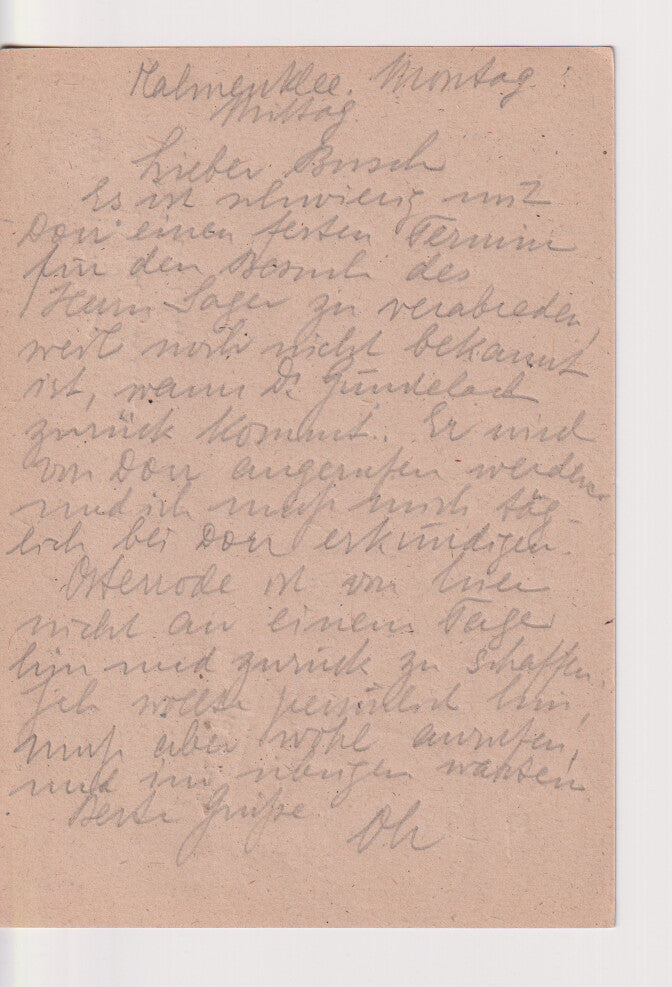 Hahnenklee. Montag
Mittag
Lieber Busch
Es ist schwierig mit
Dorr einen festen Termin
für den Besuch des
Herrn Sager zu verabreden,
weil noch nicht bekannt
ist, wann Dr. Gundelach
zurück kommt. Er wird
von Dorr angerufen werden
und ich muß mich täg-
lich bei Dorr erkundigen.
Osterode ist von hier
nicht an einem Tage
hin und zurück zu schaffen.
Ich wollte persönlich hin,
muß aber wohl anrufen,
und im übrigen warten
Beste Grüße